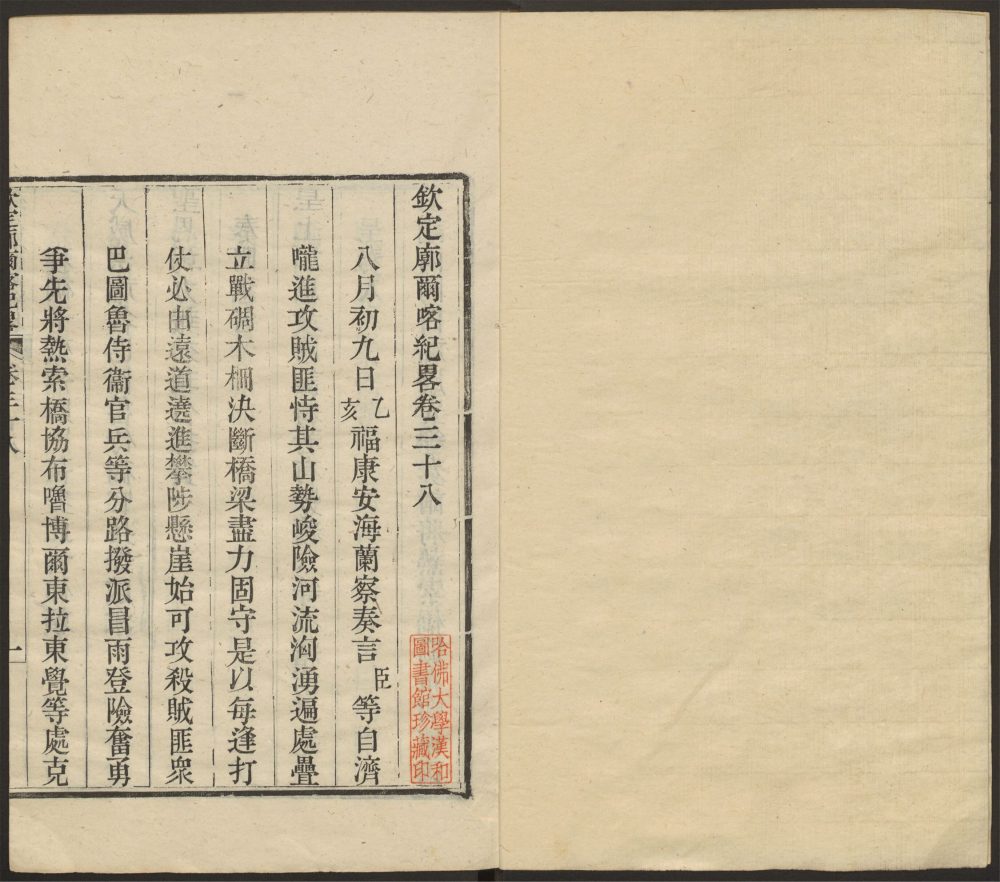 欽定廓爾喀紀畧卷三十八
八月初九日乙亥福康安海蘭察奏言臣等自濟
嚨進攻賊匪恃其山勢峻險河流洶湧遍處疊
立戰碉木柵決斷橋梁盡力固守是以每逢打
仗必由遠道遶進攀陟懸崖始可攻殺賊匪衆
巴圖魯侍衞官兵等分路撥派冒雨登險奮勇
爭先將熱索橋協布嚕博爾東拉東覺等處克
欽定廓爾喀紀畧 卷三十八 一
哈佛大學漢和
圖書館珍藏印